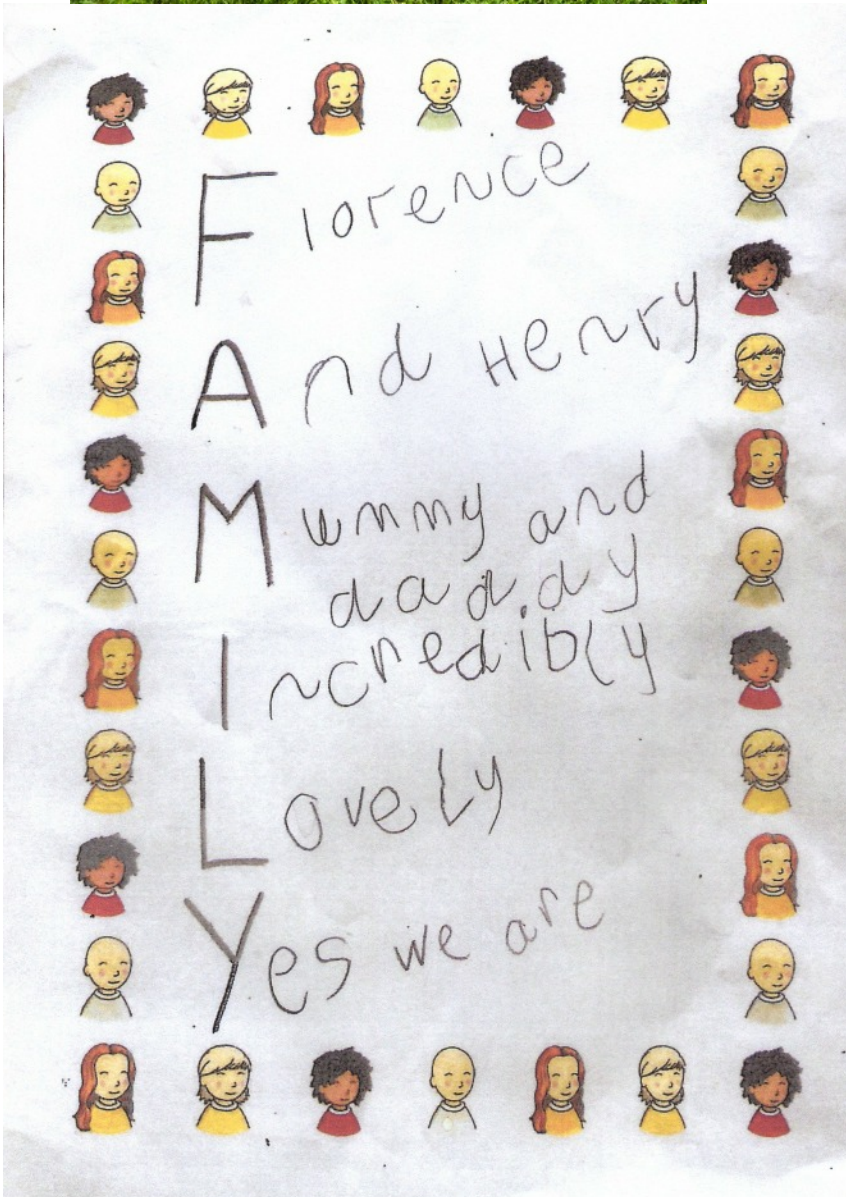 Florence
And Henry
Mummy and
daddy
Incredibly
Lovely
Yes we are